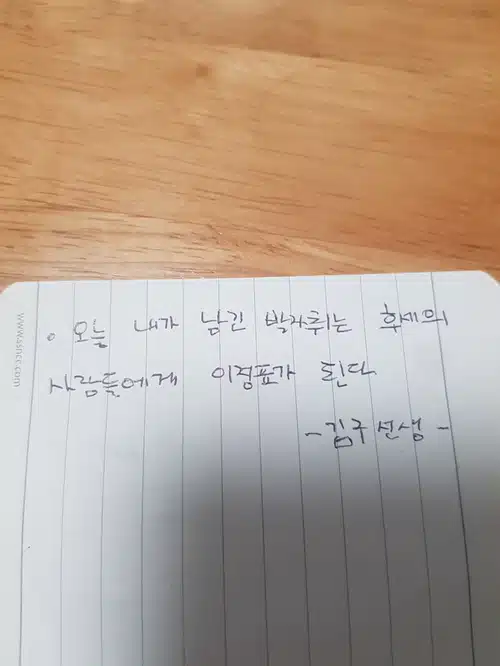 • 오늘 내가 남긴 발자취는 후세의
사람들에게 이정표가 된다
- 김구 선생 -